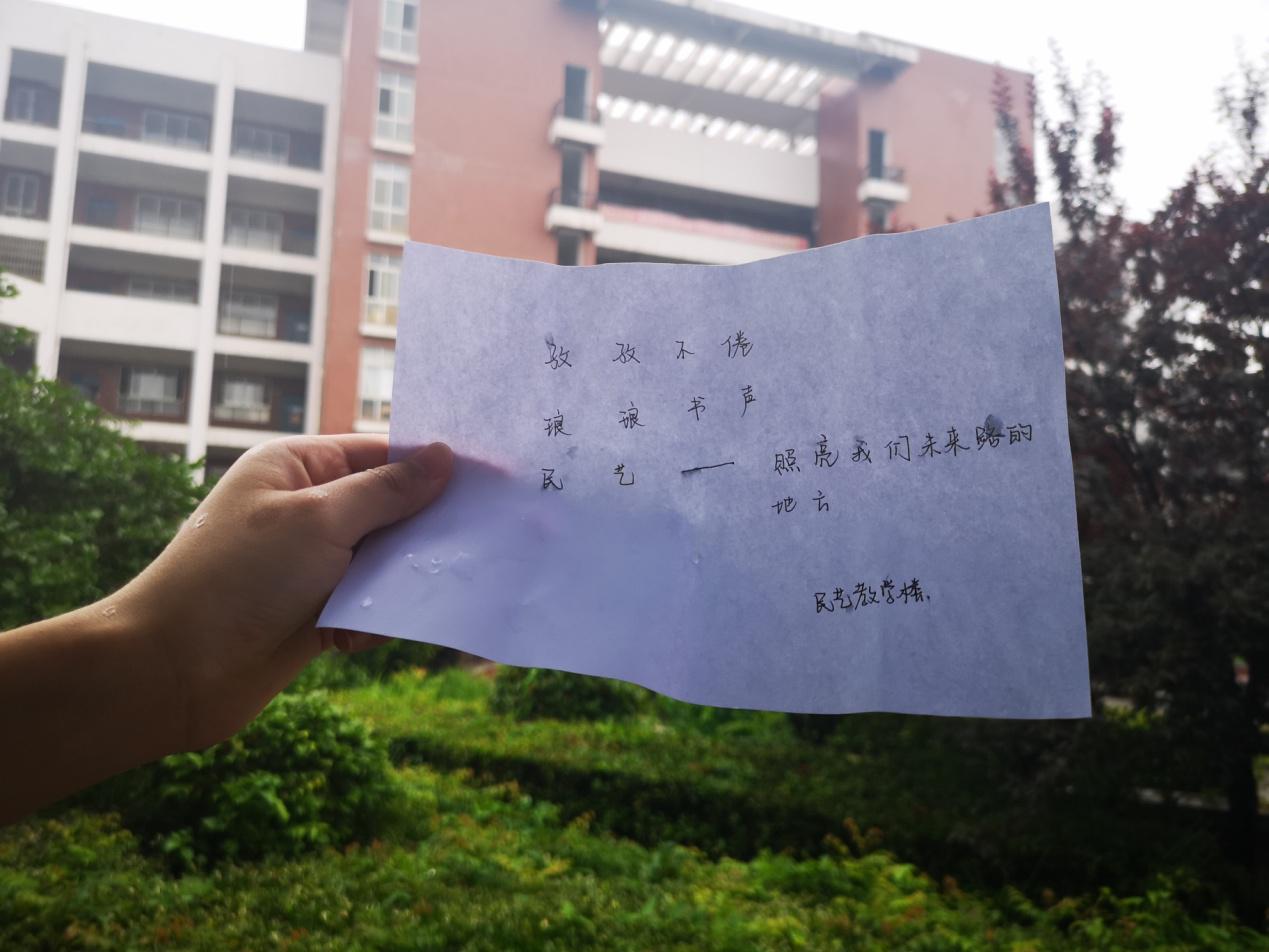 孜孜不倦
琅琅书声
民艺——照亮我们未来路的
地方
民艺教学楼.